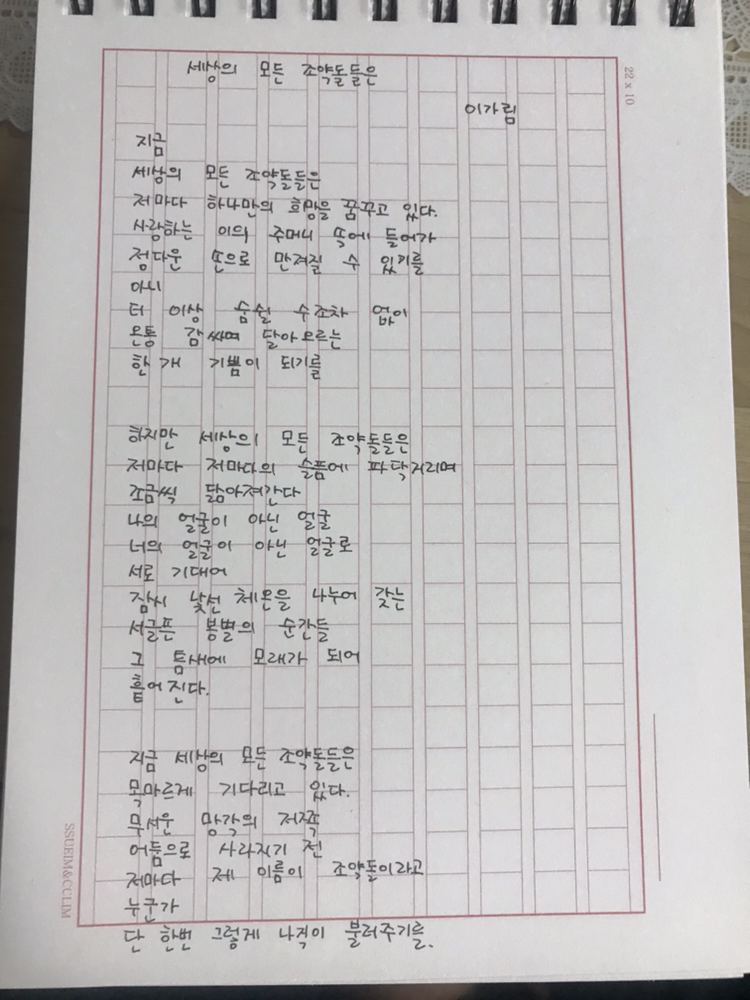 세상의 모든 조약돌들은
22 x 10
이가림
지금
세상의 모든 조약돌들은
저마다 하나만의 희망을 꿈꾸고 있다.
사랑하는 이의 주머니 속에 들어가
정다운 손으로 만져질 수 있기를
아니
더 이상 숨쉴 수조차 없이
온통 감싸여 달아오르는
한 개 기쁨이 되기를
하지만 세상의 모든 조약돌들은
저마다 저마다의 슬픔에 파닥거리며
조금씩 닮아져간다
나의 얼굴이 아닌 얼굴
너의 얼굴이 아닌 얼굴로
서로 기대어
잠시 낯선 체온을 나누어 갖는
서글픈 봉별의 순간들
그 틈새에 모래가 되어
흩어진다.
지금 세상의 모든 조약돌들은
목마르게 기다리고 있다.
무서운 망각의 저쪽
어둠으로 사라지기 전
저마다 제 이름이 조약돌이라고
누군가
단 한번 그렇게 나직이 불러주기를.
SSUEIM&CCLIM